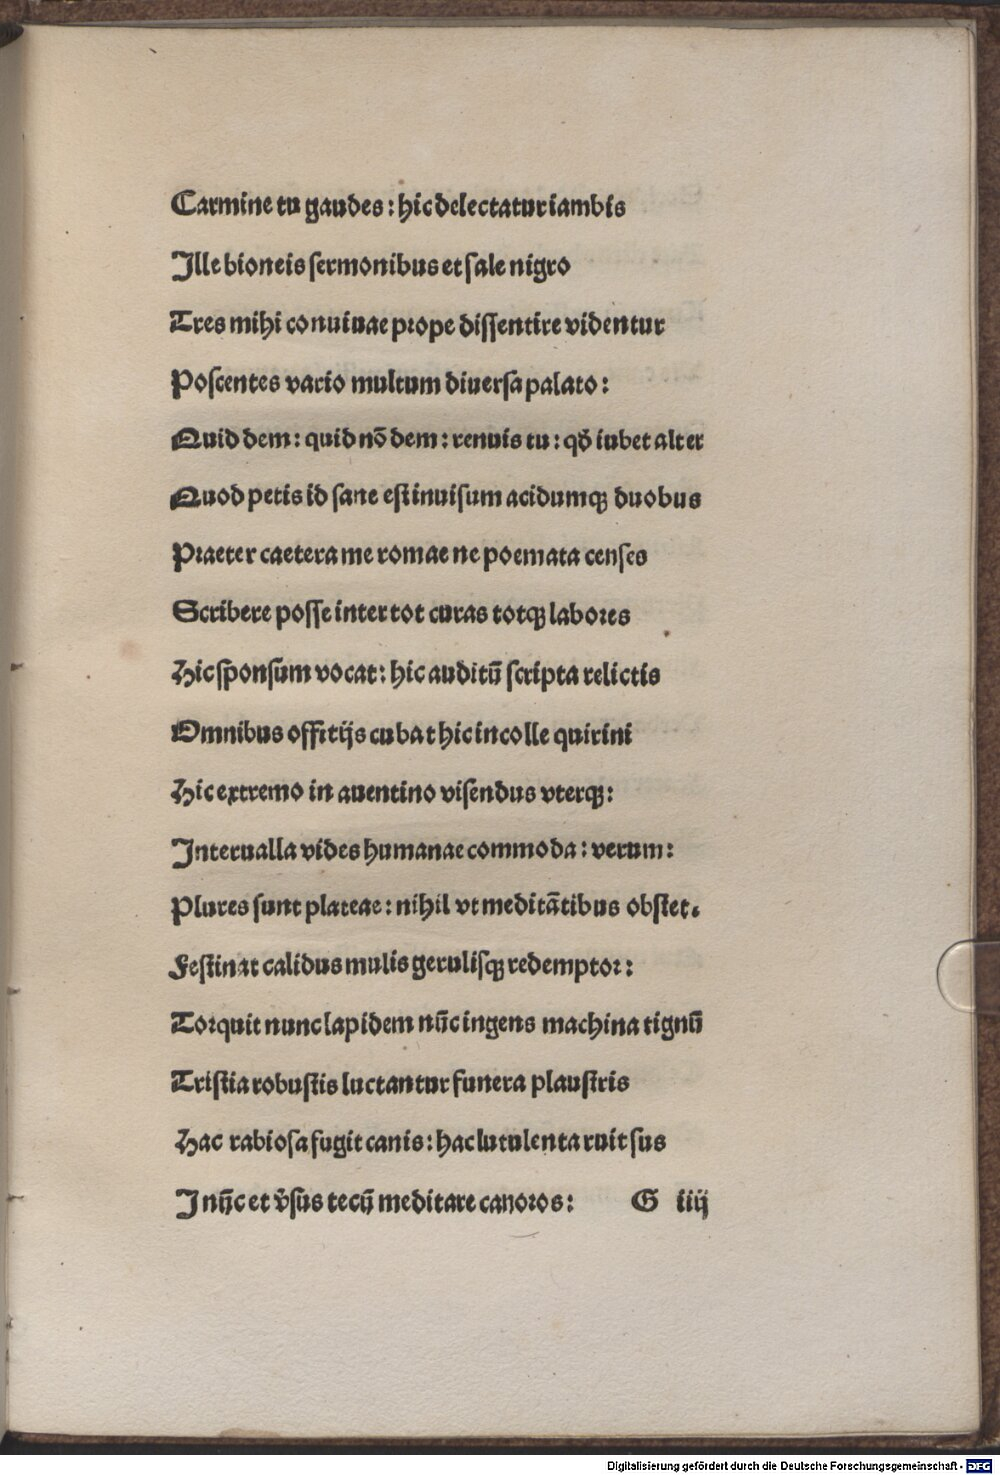 Carmine tu gaudes: hic delectatur iambis
Ille bioneis sermonibus et sale nigro
Tres mihi conuiuae prope dissentire videntur
Poscentes vario multum diuersa palato:
Quid dem: quid nō dem: renuis tu: qđ iubet alter
Quod petis id sane est inuisum acidumqꝫ duobus
Praeter caetera me romae ne poemata censes
Scribere posse inter tot curas totqꝫ labores
Hic sponsum vocat: hic auditū scripta relictis
Omnibus offitijs cubat hic in colle quirini
Hic extremo in auentino visendus vterqꝫ:
Interualla vides humanae commoda: verum:
Plures sunt plateae: nihil vt meditātibus obstet.
Festinat calidus mulis gerulisqꝫ redemptor:
Torquit nunc lapidem nūc ingens machina tignū
Tristia robustis luctantur funera plaustris
Hac rabiosa fugit canis: hac lutulenta ruit sus
I nūc et v̓sus tecū meditare canoros: G iiij
Digitalisierung gefördert durch die Deutsche Forschungsgemeinschaft - DFG